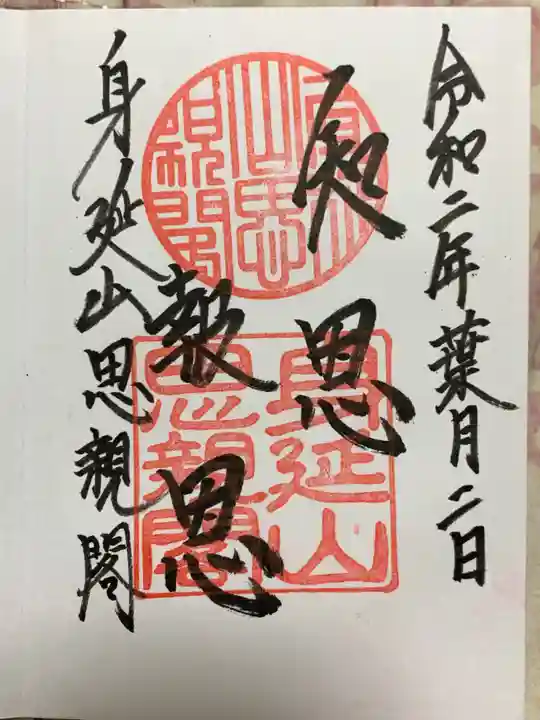 令和二年葉月二日
知恩
報恩
身延山思親閣
身延山
思親閣